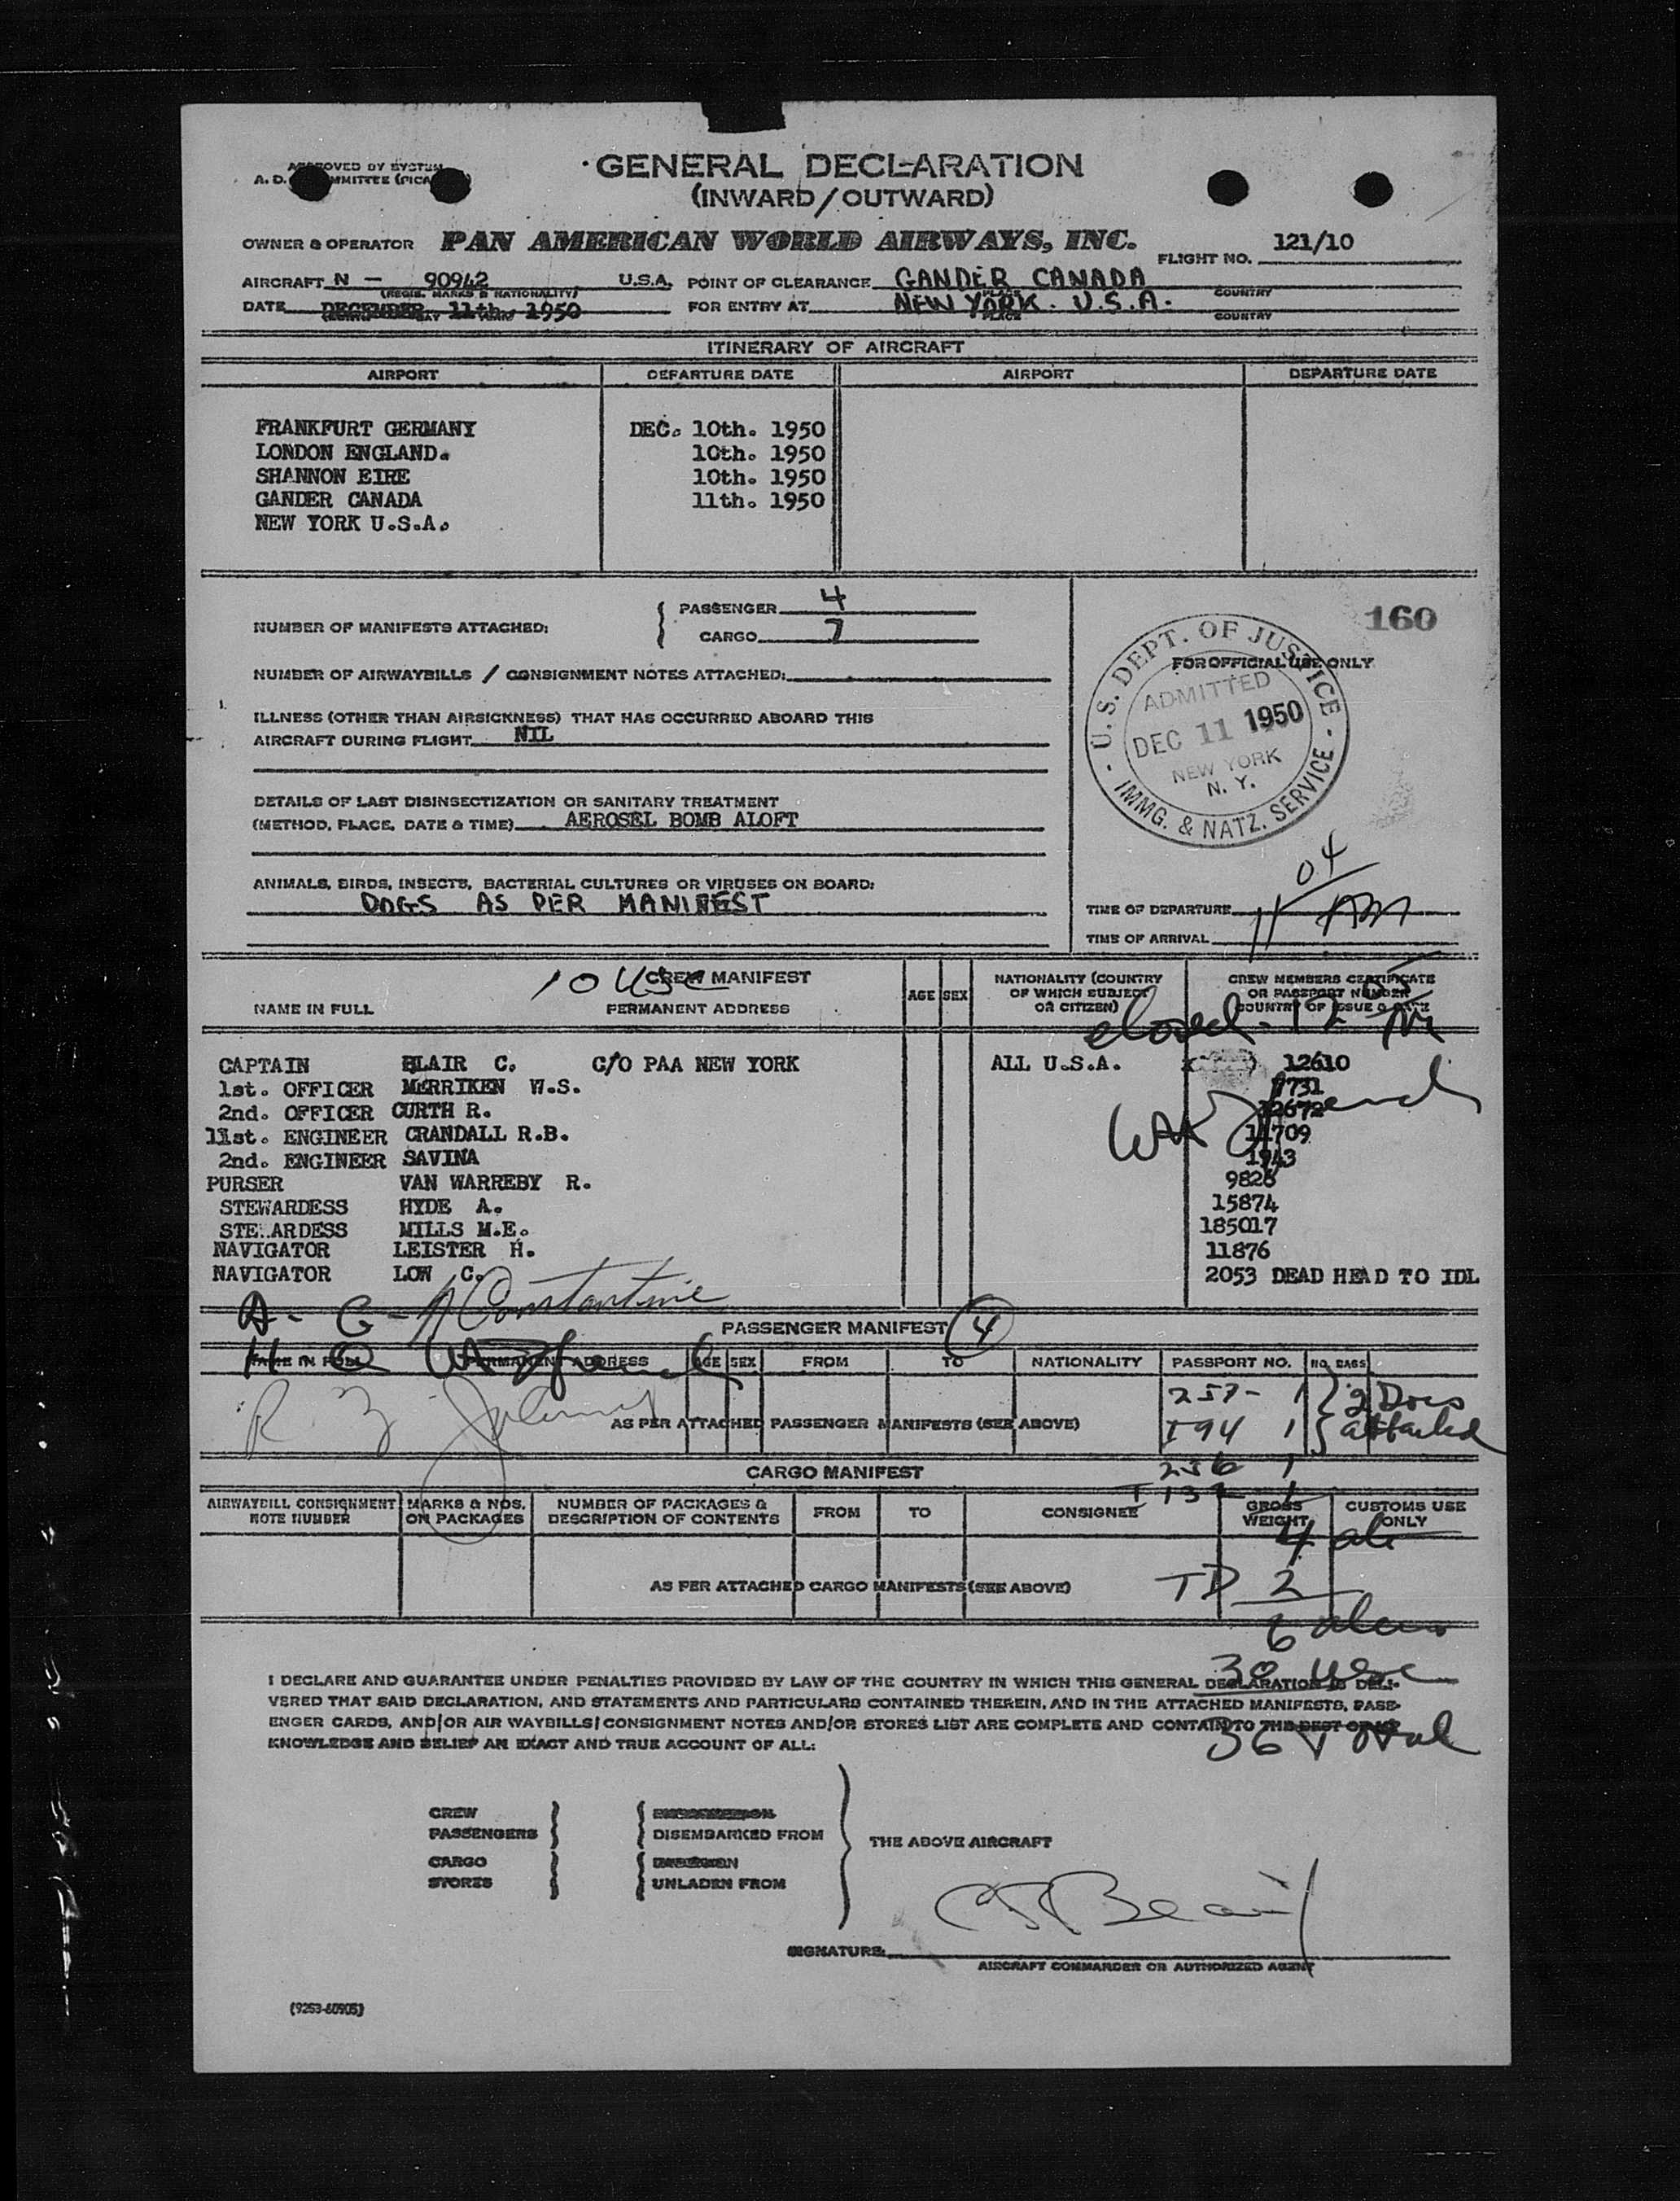 APPROVED BY SYSTEM
GENERAL DECLARATION
(INWARD/OUTWARD)
OWNER & OPERATOR PAN AMERICAN WORLD AIRWAYS, INC. FLIGHT NO. 121/10
AIRCRAFT N - 90942 U.S.A. POINT OF CLEARANCE GANDER CANADA
(REGIS. MARKS & NATIONALITY) PLACE COUNTRY
DATE DECEMBER 11th. 1950 FOR ENTRY AT NEW YORK. U.S.A.
PLACE COUNTRY
ITINERARY OF AIRCRAFT
AIRPORT DEPARTURE DATE AIRPORT DEPARTURE DATE
FRANKFURT GERMANY DEC. 10th. 1950
LONDON ENGLAND. 10th. 1950
SHANNON EIRE 10th. 1950
GANDER CANADA 11th. 1950
NEW YORK U.S.A.
NUMBER OF MANIFESTS ATTACHED: PASSENGER 4
CARGO 7
160
FOR OFFICIAL USE ONLY
U.S. DEPT. OF JUSTICE
ADMITTED
DEC 11 1950
NEW YORK
N. Y.
IMMG. & NATZ. SERVICE
NUMBER OF AIRWAYBILLS / CONSIGNMENT NOTES ATTACHED:
ILLNESS (OTHER THAN AIRSICKNESS) THAT HAS OCCURRED ABOARD THIS
AIRCRAFT DURING FLIGHT NIL
DETAILS OF LAST DISINSECTIZATION OR SANITARY TREATMENT
(METHOD, PLACE, DATE & TIME) AEROSEL BOMB ALOFT
ANIMALS, BIRDS, INSECTS, BACTERIAL CULTURES OR VIRUSES ON BOARD:
DOGS AS PER MANIFEST
TIME OF DEPARTURE
TIME OF ARRIVAL 11 04 AM
10 USC CREW MANIFEST
NAME IN FULL PERMANENT ADDRESS AGE SEX NATIONALITY (COUNTRY OF WHICH SUBJECT OR CITIZEN) CREW MEMBERS CERTIFICATE OR PASSPORT NUMBER COUNTRY OF ISSUE & DATE
closed. 12
CAPTAIN BLAIR C. C/O PAA NEW YORK ALL U.S.A. 12610
1st. OFFICER MERRIKEN W.S. 7731
2nd. OFFICER CURTH R. 12672
11st. ENGINEER CRANDALL R.B. 11709
2nd. ENGINEER SAVINA 1943
PURSER VAN WARREBY R. 9826
STEWARDESS HYDE A. 15874
STE..ARDESS MILLS M.E. 185017
NAVIGATOR LEISTER H. 11876
NAVIGATOR LOW C. 2053 DEAD HEAD TO IDL
A - G - Constantine
PASSENGER MANIFEST 4
NAME IN FULL PERMANENT ADDRESS AGE SEX FROM TO NATIONALITY PASSPORT NO. NO. BAGS
257 - 1 2 Docs
AS PER ATTACHED PASSENGER MANIFESTS (SEE ABOVE) I94 1 attached
256 1
CARGO MANIFEST
AIRWAYBILL CONSIGNMENT NOTE NUMBER MARKS & NOS. ON PACKAGES NUMBER OF PACKAGES & DESCRIPTION OF CONTENTS FROM TO CONSIGNEE GROSS WEIGHT CUSTOMS USE ONLY
4
AS PER ATTACHED CARGO MANIFESTS (SEE ABOVE) TD 2
6 aliens
30 USC
36 Total
I DECLARE AND GUARANTEE UNDER PENALTIES PROVIDED BY LAW OF THE COUNTRY IN WHICH THIS GENERAL DECLARATION IS DELI-
VERED THAT SAID DECLARATION, AND STATEMENTS AND PARTICULARS CONTAINED THEREIN, AND IN THE ATTACHED MANIFESTS, PASS-
ENGER CARDS, AND/OR AIR WAYBILLS/CONSIGNMENT NOTES AND/OR STORES LIST ARE COMPLETE AND CONTAIN TO THE BEST OF MY
KNOWLEDGE AND BELIEF AN EXACT AND TRUE ACCOUNT OF ALL:
CREW
PASSENGERS DISEMBARKED FROM
THE ABOVE AIRCRAFT
CARGO
STORES UNLADEN FROM
SIGNATURE: C F Blair
AIRCRAFT COMMANDER OR AUTHORIZED AGENT
(9253-60905)